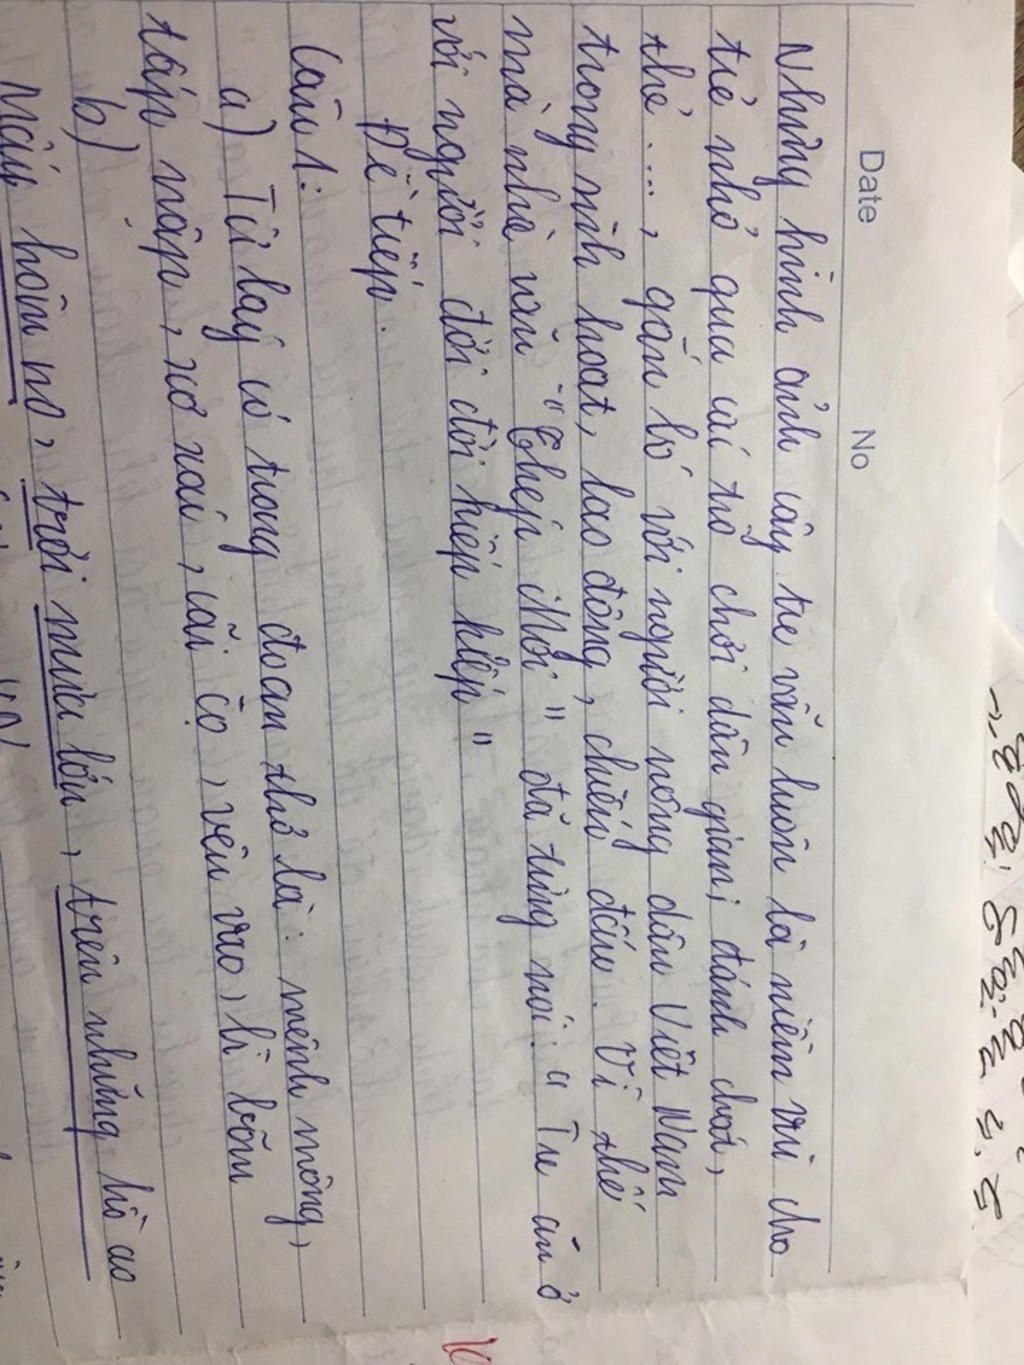 Date
No
Những hình ảnh cây tre vẫn luôn là niềm vui cho
trẻ nhỏ qua cái trò chơi dân gian; đánh chắt,
thẻ...., gắn bó với người nông dân Việt Nam
trong sinh hoạt, lao động, chiến đấu. Vì thế
mà nhà văn "Thép Mới" đã từng nói: "Tre ăn ở
với người đời đời kiếp kiếp"
Đề tiếp.
Câu 1:
a) Từ láy có trong đoạn thơ là: mênh mông,
tấp nập, xơ xác, cãi cọ, vêu vao, bì bõm
b)
Mấy hôm nọ, trời mưa lớn, trên những hồ ao